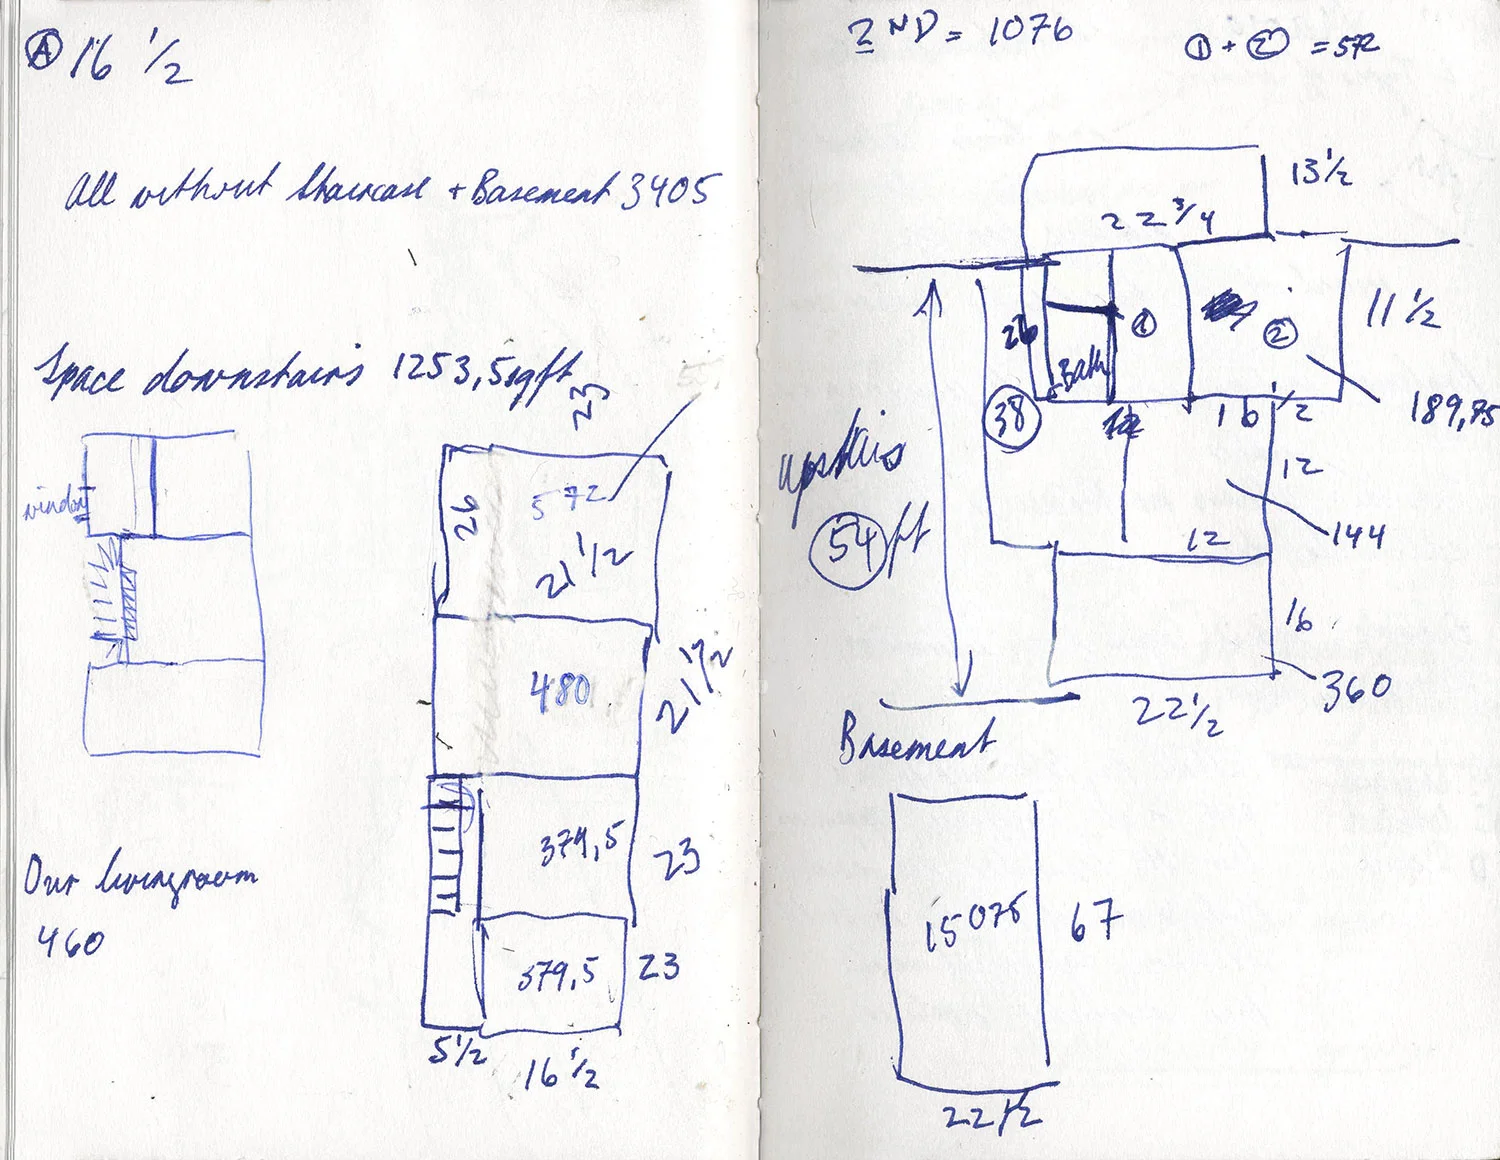 A 16 1/2
All without Staircase + Basement 3405
Space downstairs 1253,5 sqft
23
window
26
572
21 1/2
480
21 1/2
379,5
23
379,5
23
5 1/2
16 1/2
Our livingroom
460
2ND = 1076
1 + 2 = 572
13 1/2
22 3/4
26
Bath
1
2
11 1/2
38
16 1/2
189,75
upstairs
54 ft
12
12
144
16
360
22 1/2
Basement
15075
67
22 1/2